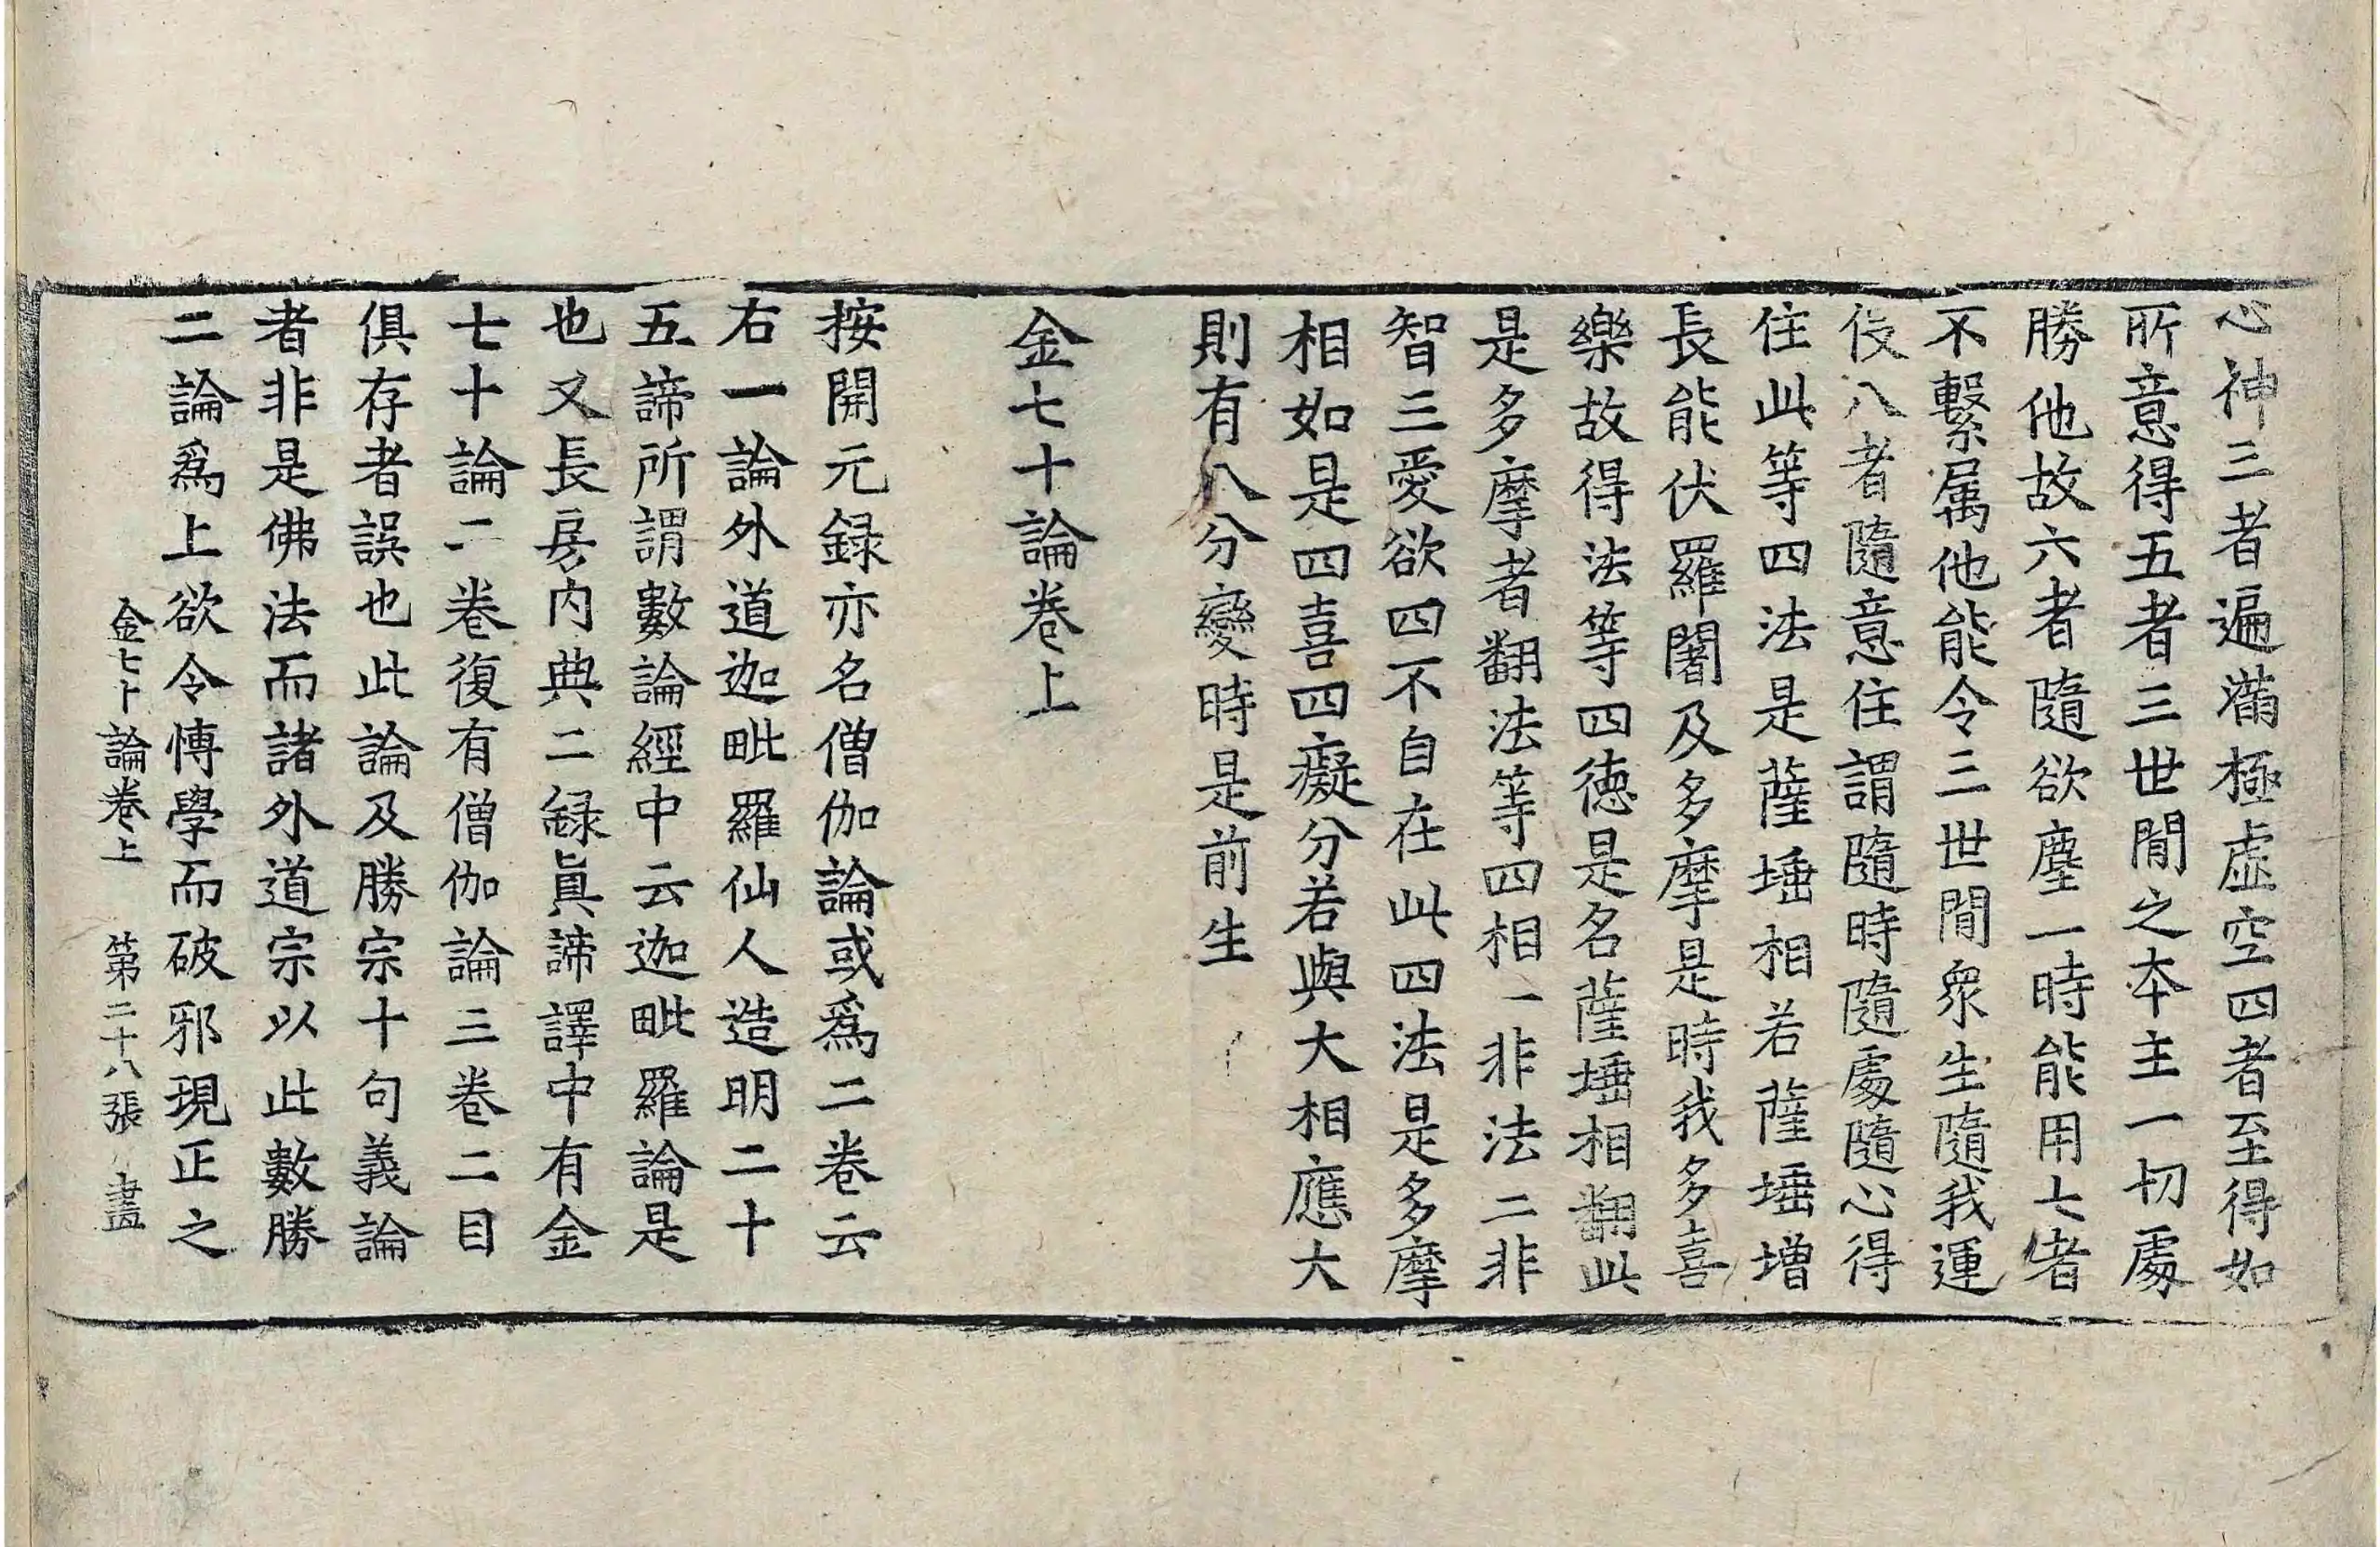 心神三者遍滿極虛空四者至得如
所意得五者三世閒之本主一切處
勝他故六者隨欲塵一時能用七者
不繫属他能令三世閒衆生隨我運
伇八者隨意住謂隨時隨處隨心得
住此等四法是薩埵相若薩埵增
長能伏羅闍及多摩是時我多喜
樂故得法等四德是名薩埵相翻此
是多摩者翻法等四相一非法二非
智三愛欲四不自在此四法是多摩
相如是四喜四癡分若與大相應大
則有八分變時是前生
金七十論卷上
按開元録亦名僧伽論或爲二卷云
右一論外道迦毗羅仙人造明二十
五諦所謂數論經中云迦毗羅論是
也又長房内典二録眞諦譯中有金
七十論二卷復有僧伽論三卷二目
俱存者誤也此論及勝宗十句義論
者非是佛法而諸外道宗以此數勝
二論爲上欲令博學而破邪現正之
金七十論卷上 第二十八張 盡